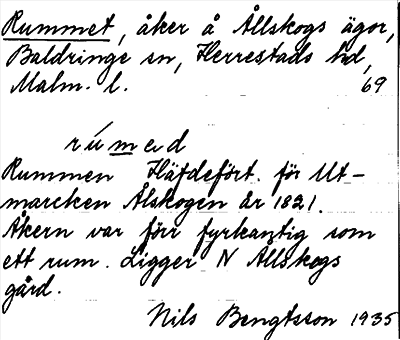 Rummet, åker å Ållskogs ägor,
Baldringe sn, Herrestads hd,
Malm. l. 69
rúmeəd
Rummen Häfdefört. för Ut-
marcken Ålskogen år 1821.
Åkern var förr fyrkantig som
ett rum. Ligger N Ållskogs
gård.
Nils Bengtsson 1935